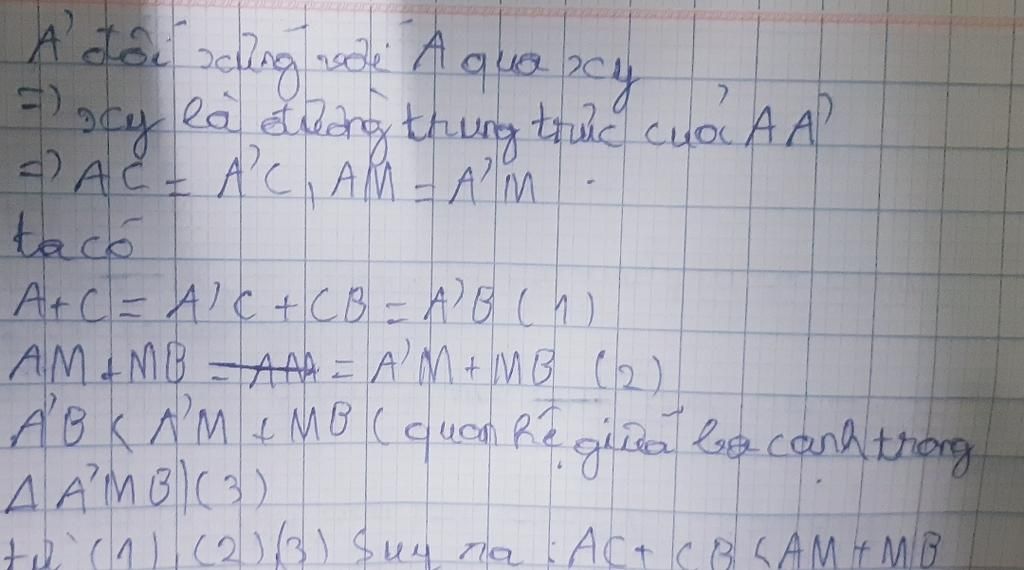 A' đối xứng với A qua xy
=> xy là đường thung trực của AA'
=> AC = A'C, AM = A'M
ta có
A+C = A'C + CB = A'B (1)
AM + MB = A'M + MB (2)
A'B < A'M + MB (quan hệ giữa ba cạnh trong
Δ A'MB) (3)
từ (1), (2) (3) Suy ra : AC + CB < AM + MB